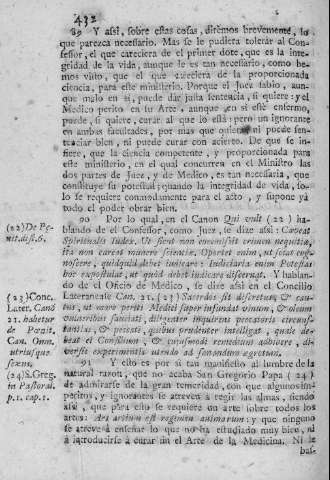 432
89 Y assi, sobre estas cosas, dirèmos brevemente, lo
que parezca necessario. Mas se le pudiera tolerár al Con-
fessor, el que careciera del primer dote, que es la inte-
gridad de la vida, aunque le es tan necessario, como he-
mos visto, que el que careciera de la proporcionada
ciencia, para este ministerio. Porque el Juez sabio, aun-
que malo en si, puede dár justa sentencia, si quiere: y el
Medico perito en su Arte, aunque en si esté enfermo,
puede, si quiere, curar al que lo està: pero un ignorante
en ambas facultades, por mas que quiera, ni puede sen-
tenciar bien, ni puede curar con acierto. De que se in-
fiere, que la ciencia competente, y proporcionada para
este ministerio, en el qual concurren en el Ministro las
dos partes de Juez, y de Medico, es tan necessaria, que
constituye su potestad; quando la integridad de vida, so-
lo se requiere comodamente para el acto, y supone yà
todo el poder obrar bien.
90 Por lo qual, en el Canon Qui vult (22) ha-
blando de el Confessor, como Juez, se dize assi: Caveat
Spiritualis Iudex. Ut sicut non commissit crimen nequitiæ,
ita non careat munere scientiæ. Oportet enim, ut sciat cog-
noscere, quidquid debet iudicare: Iudiciaria enim Potestas
hoc expostulat, ut quod debit iudicare discernat. Y hablan-
do de el Oficio de Medico, se dize assi en el Concilio
Lateranense Can. 21. (23) Sacerdos sit discretus, & cau-
tus, ut more periti Medici superinfundat vinum, & oleum
vulneribus sauciati, diligenter inquirens peccatoris circuns-
tantias, & peccati, quibus prudenter intelligat, quale de-
beat ei Consilium, & cujusmodi remedium adhibere, di-
versis experimentis utendo ad sanandum ægrotum.
91 Y esto es por sì tan manifiesto al lumbre de la
natural razon, que no acaba San Gregorio Papa (24)
de admirarse de la gran temeridad, con que algunos im-
peritos, y ignorantes se atreven à regir las almas, siendo
assi, que para esto se requiere un arte sobre todos los
artes: Ars artium est regimen animarum: y que ninguno
se atreve à enseñar lo que no ha estudiado muy bien, ni
à introducirse à curar sin el Arte de la Medicina. Ni le
bas-
(22) De Pœ-
nit. dist. 6.
(23) Conc.
Later. Canõ
21. habetur
de Pœnit.
Can. Omn.
utriusque
sexus,
(24) S. Greg.
in Pastoral.
p. 1. cap. 1.